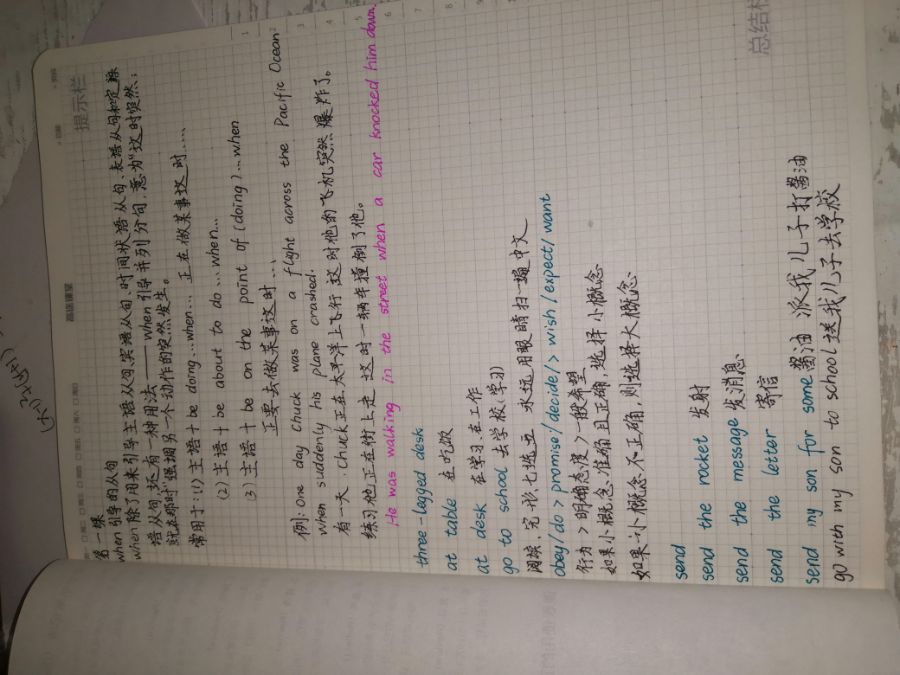 提示栏
总结栏
第一课
when引导的从句
when除了用来引导主语从句、宾语从句、时间状语从句、表语从句和定
语从句,还有一种用法——when引导并列分句,意为"这时突然;
就在那时"强调另一个动作的突然发生。
常用于:(1)主语+be doing...when... 正在做某事这时....
(2)主语+be about to do...when...
(3)主语+be on the point of (doing)...when
正要去做某事这时....
例:One day Chuck was on a flight across the Pacific Ocean
when suddenly his plane crashed.
有一天,Chuck正在太平洋上飞行 这时他的飞机突然爆炸了。
练习:他正在街上走 这时一辆车撞倒了他。
He was walking in the street when a car knocked him down.
three-legged desk
at table 在吃饭
at desk 在学习、在工作
go to school 去学校(学习)
阅读、完形、七选五 永远用眼睛扫一遍中文
obey/do > promise/decide/> wish/expect/want
行为>明确态度>一般希望
如果小概念准确且正确,选择小概念
如果小概念不正确,则选择大概念
send
send the rocket 发射
send the message 发消息
send the letter 寄信
send my son for some酱油 派我儿子打酱油
go with my son to school 送我儿子去学校